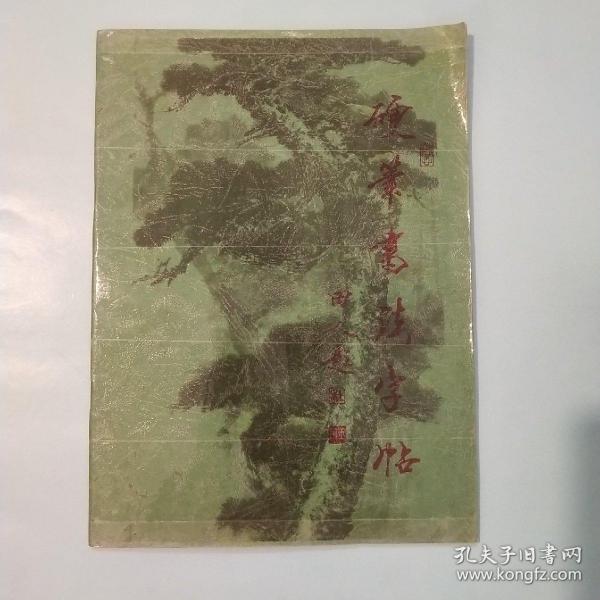 硬筆書法字帖
孔夫子旧书网
www.kongfz.com